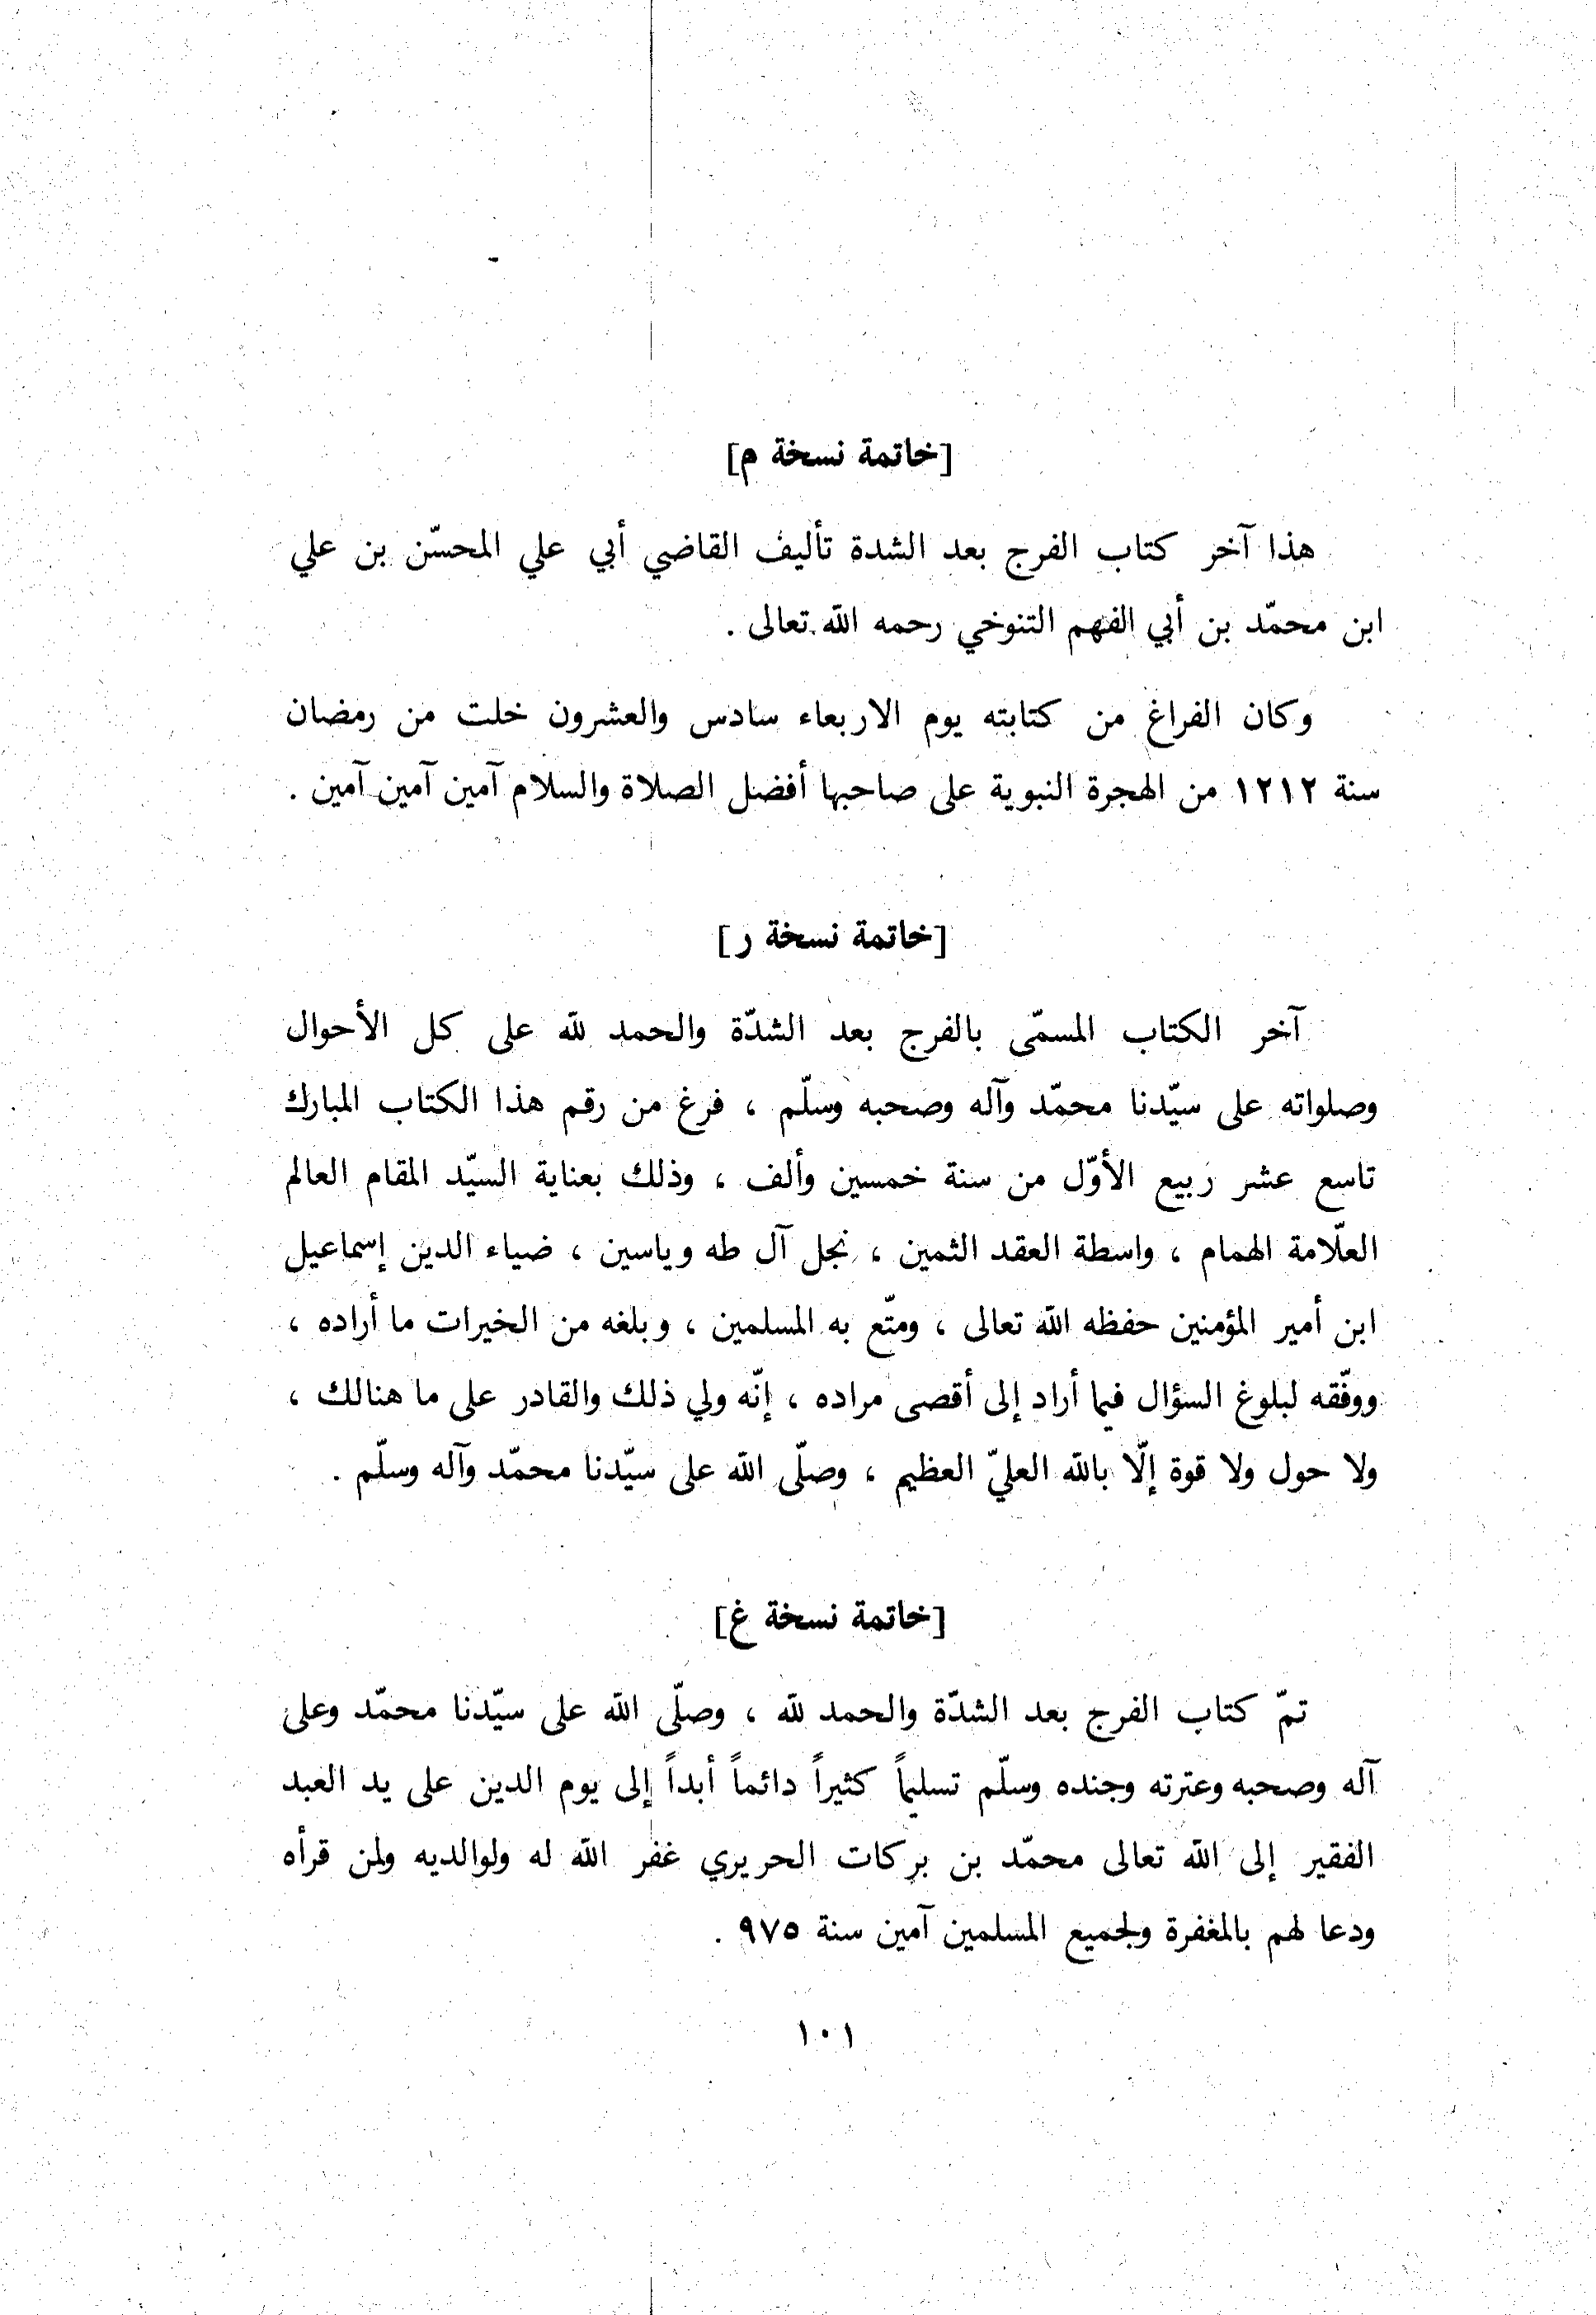 [خاتمة نسخة م]
هذا آخر كتاب الفرج بعد الشدة تأليف القاضي أبي علي المحسّن بن علي
ابن محمّد بن أبي الفهم التنوخي رحمه الله تعالى .
وكان الفراغ من كتابته يوم الاربعاء سادس والعشرون خلت من رمضان
سنة ١٢١٢ من الهجرة النبوية على صاحبها أفضل الصلاة والسلام آمين آمين آمين .
[خاتمة نسخة ر]
آخر الكتاب المسمّى بالفرج بعد الشدّة والحمد لله على كل الأحوال
وصلواته على سيّدنا محمّد وآله وصحبه وسلّم ، فرغ من رقم هذا الكتاب المبارك
تاسع عشر ربيع الأوّل من سنة خمسين وألف ، وذلك بعناية السيّد المقام العالم
العلّامة الهمام ، واسطة العقد الثمين ، نجل آل طه وياسين ، ضياء الدين إسماعيل
ابن أمير المؤمنين حفظه الله تعالى ، ومتّع به المسلمين ، وبلغه من الخيرات ما أراده ،
ووفّقه لبلوغ السؤال فيما أراد إلى أقصى مراده ، إنّه ولي ذلك والقادر على ما هنالك ،
ولا حول ولا قوة إلّا بالله العليّ العظيم ، وصلّى الله على سيّدنا محمّد وآله وسلّم .
[خاتمة نسخة غ]
تمّ كتاب الفرج بعد الشدّة والحمد لله ، وصلّى الله على سيّدنا محمّد وعلى
آله وصحبه وعترته وجنده وسلّم تسليماً كثيراً دائماً أبداً إلى يوم الدين على يد العبد
الفقير إلى الله تعالى محمّد بن بركات الحريري غفر الله له ولوالديه ولمن قرأه
ودعا لهم بالمغفرة ولجميع المسلمين آمين سنة ٩٧٥ .
١٠١